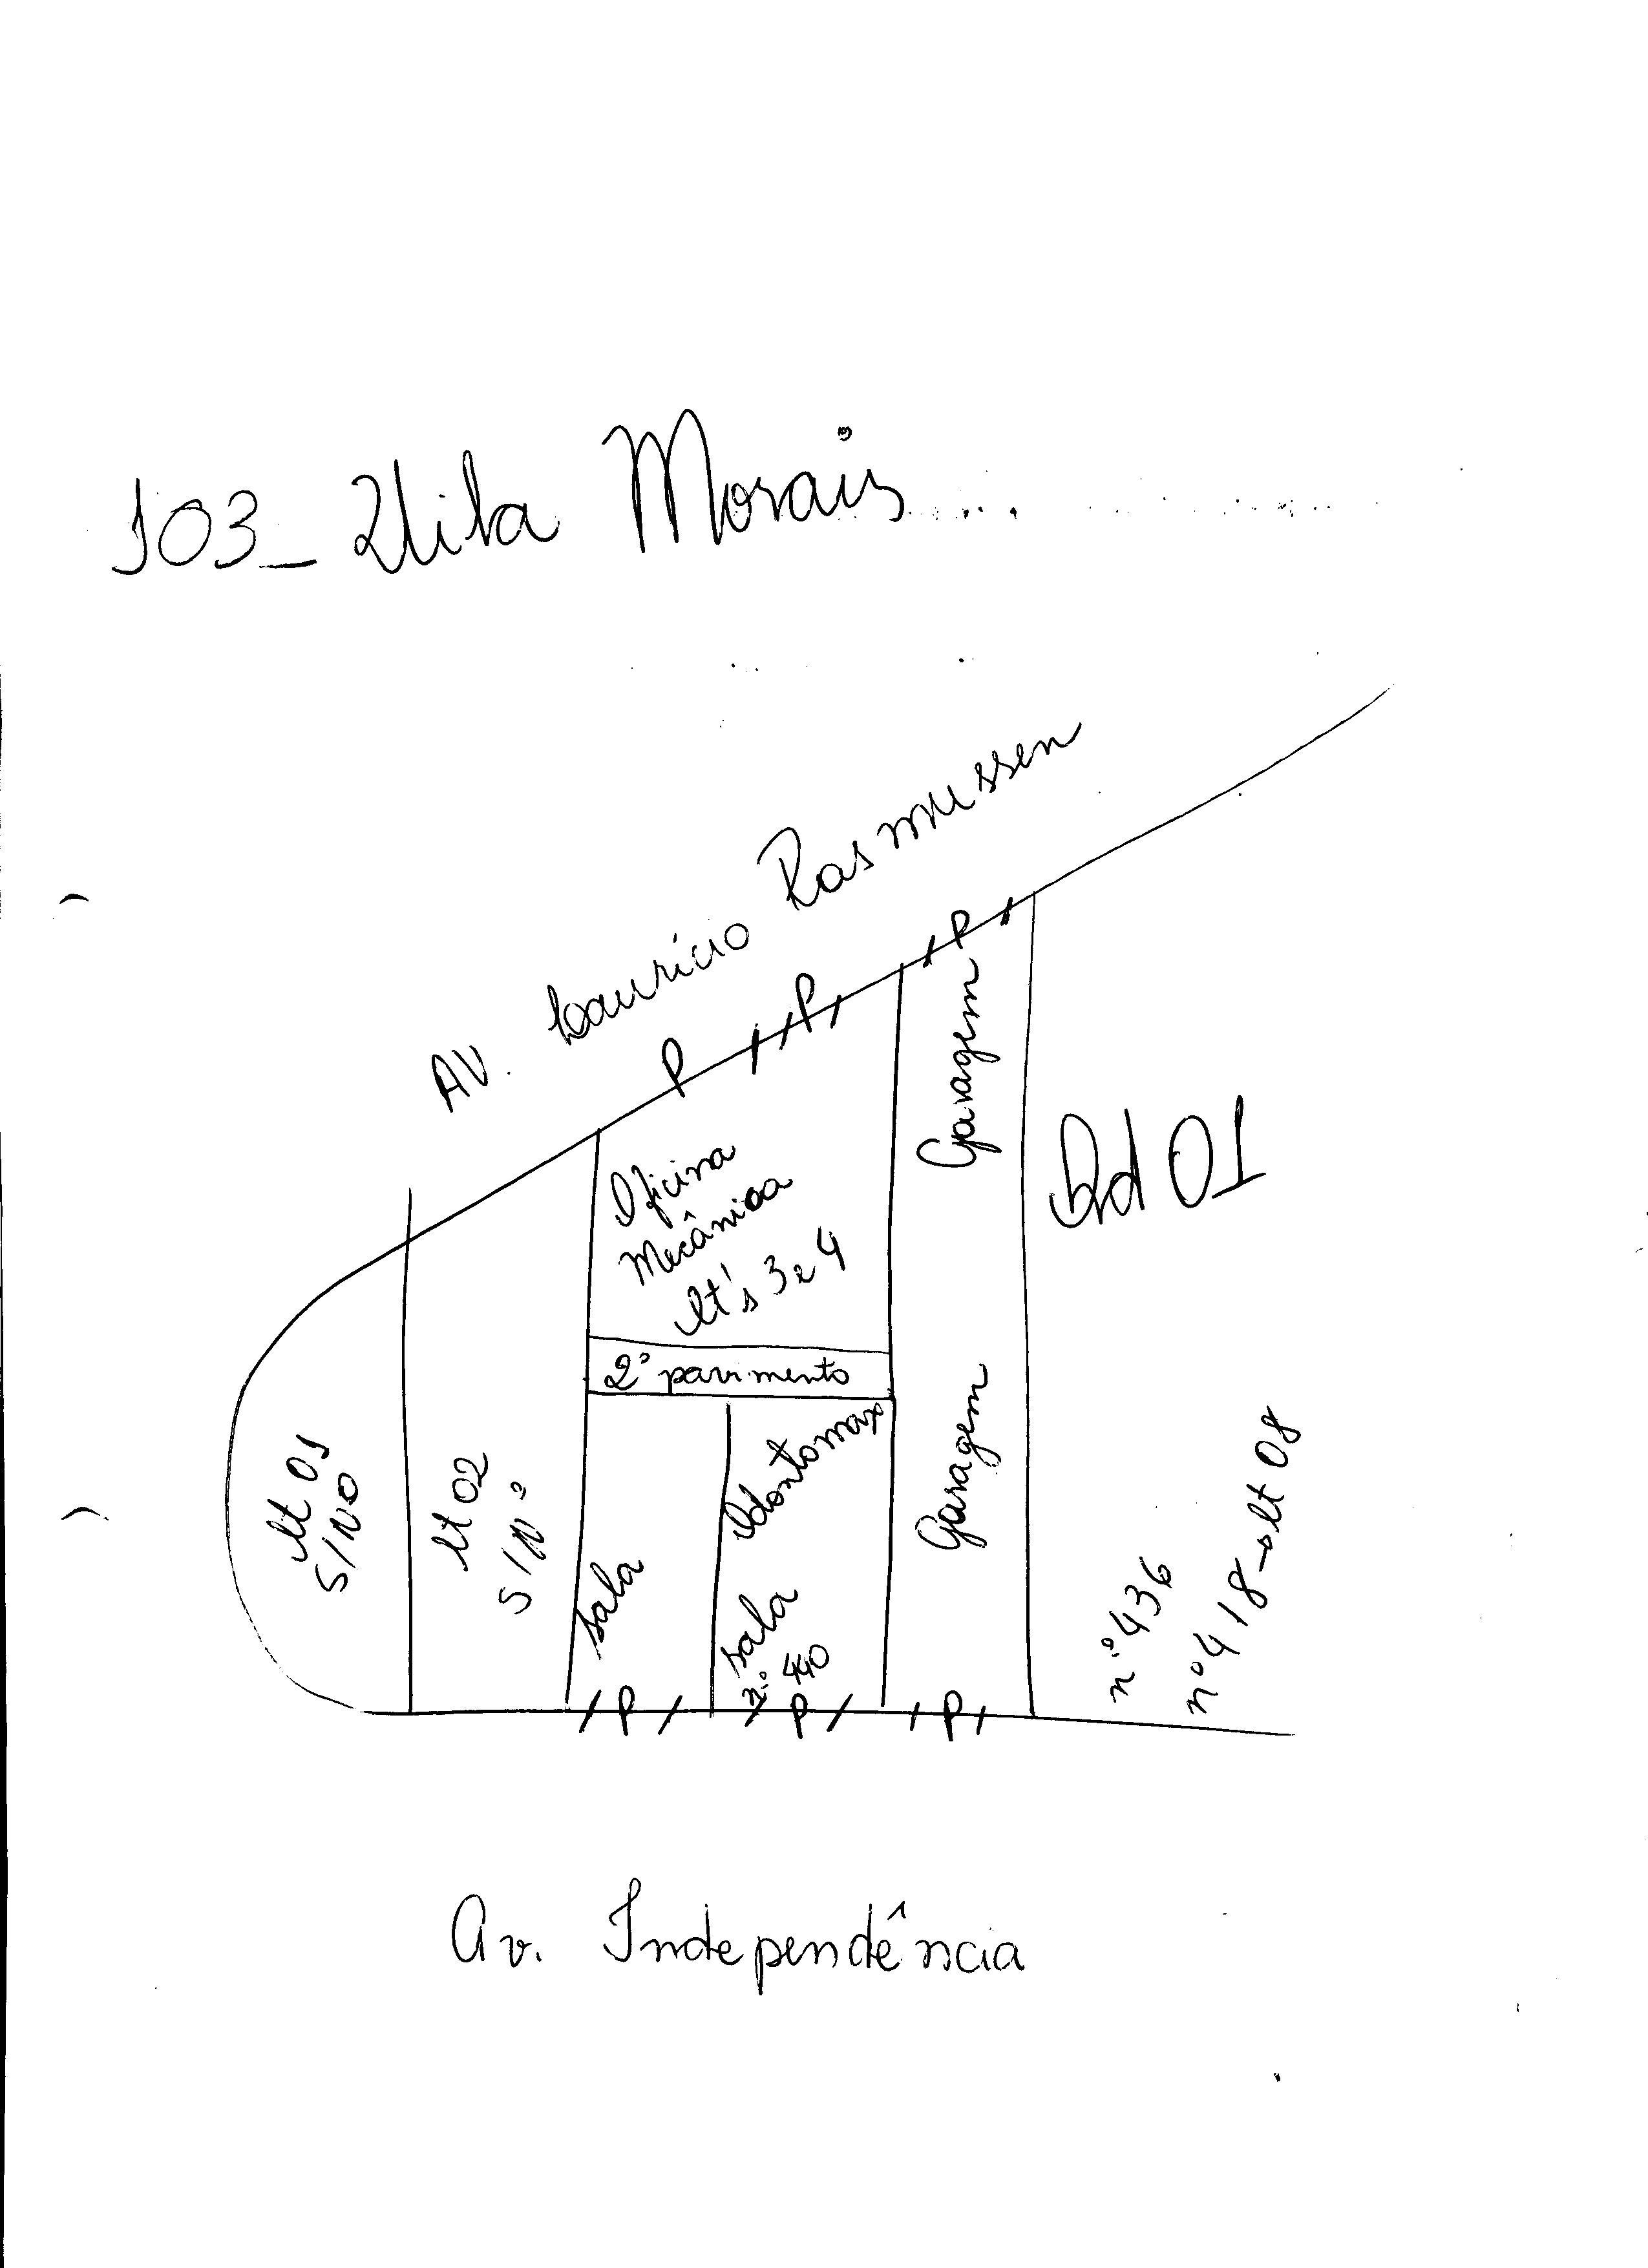 103_ Vila Morais
AV. Laurício Rasmussen
P
P
P
Garagem
Oficina
Mecânica
lt's 3 e 4
Qd 01
2º pavimento
lt 01
S/Nº
lt 02
S/Nº
sala
Odontomax
sala
nº 440
Garagem
nº 436
nº 418→lt 08
P
P
P
Av. Independência